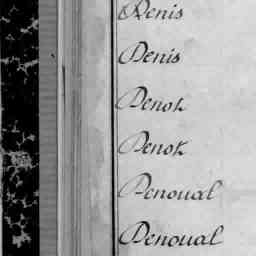 Denis
Denis
Denok
Denok
Denoual
Denoual